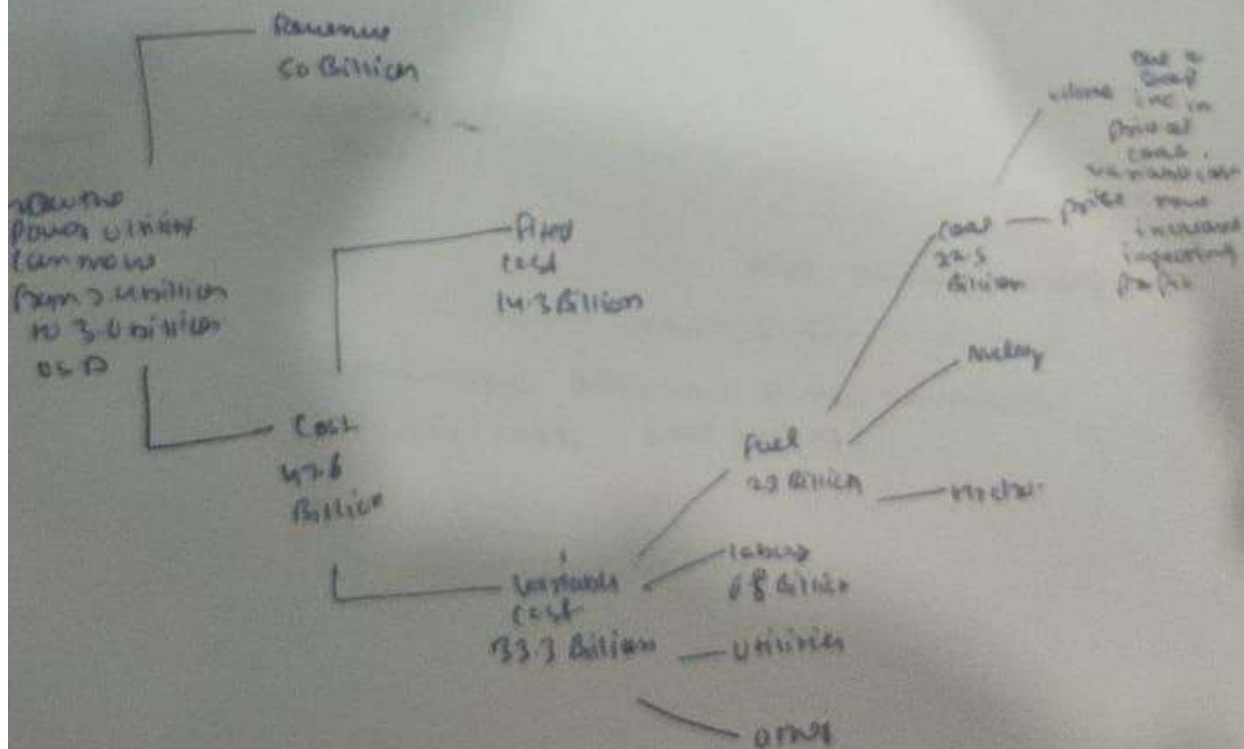 Revenue
50 Billion
Power utility
can move
from 2.4 billion
to 3.4 billion
USD
Cost
47.6
Billion
Fixed
cost
14.3 Billion
Variable
cost
33.3 Billion
Fuel
Billion
labour
6.8 Billion
Utilities
other
coal
22.5
Billion
Nuclear
Hydro
volume
price
Due to
inc in
price of
coal,
variable cost
have
increased
impacting
profit